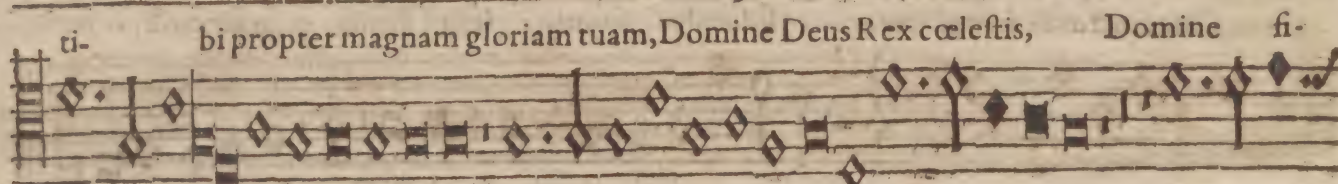 ti- bi propter magnam gloriam tuam, Domine Deus Rex cœleſtis, Domine fi-